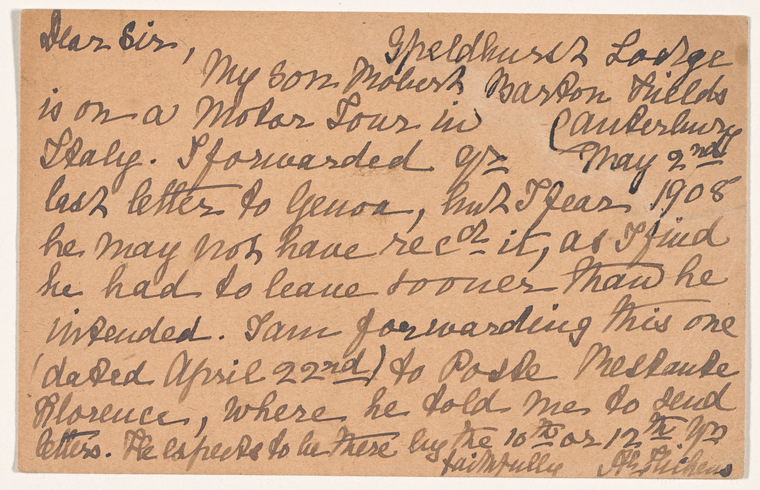 Dear Sir,
Speldhurst Lodge
Barton Fields
Canterbury
May 2nd
1908
My son Robert
is on a Motor Tour in
Italy. I forwarded yr
last letter to Genoa, but I fear
he may not have recd it, as I find
he had to leave sooner than he
intended. I am forwarding this one
(dated April 22nd) to Poste Restante
Florence, where he told me to send
letters. He expects to be there by the 10th or 12th Yrs
faithfully